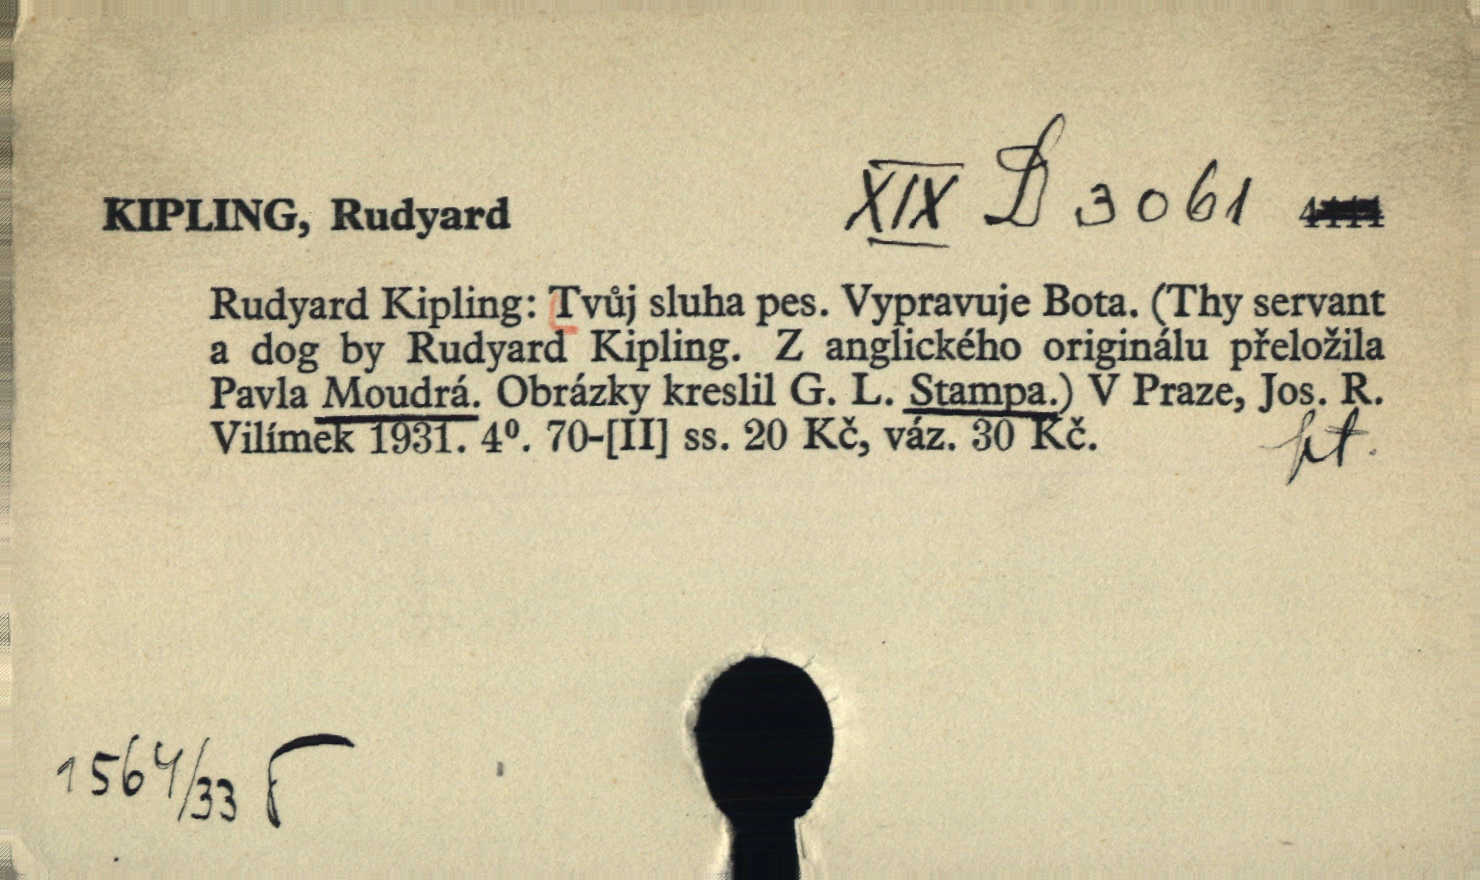 KIPLING, Rudyard
XIX D 3061
Rudyard Kipling: Tvůj sluha pes. Vypravuje Bota. (Thy servant
a dog by Rudyard Kipling. Z anglického originálu přeložila
Pavla Moudrá. Obrázky kreslil G. L. Stampa.) V Praze, Jos. R.
Vilímek 1931. 4⁰. 70-[II] ss. 20 Kč, váz. 30 Kč.
1564/33